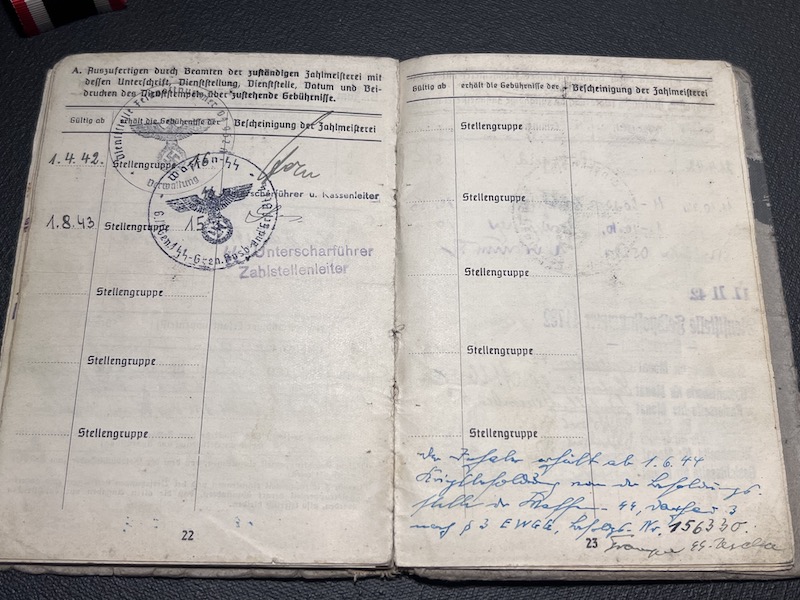 A. Auszufertigen durch Beamten der zuständigen Zahlmeisterei mit
dessen Unterschrift, Dienststellung, Dienststelle, Datum und Bei-
drücken des Dienststempels über zustehende Gebührnisse.
Gültig ab
erhält die Gebührnisse der
Bescheinigung der Zahlmeisterei
1.4.42. Stellengruppe 16
Dienststelle Feldpostnummer
Verwaltung
Waffen-SS
Unterscharführer u. Kassenleiter
1.8.43 Stellengruppe 15
Unterscharführer
Zahlstellenleiter
Stellengruppe
Stellengruppe
Stellengruppe
22
Gültig ab
erhält die Gebührnisse der
Bescheinigung der Zahlmeisterei
Stellengruppe
Stellengruppe
Stellengruppe
Stellengruppe
Stellengruppe
der Inhaber erhält ab 1.6.44
Kriegsbesoldung von der Besoldungs-
stelle der Waffen-SS, 3
nach § 3 EWGG, Nr. 156330.
23